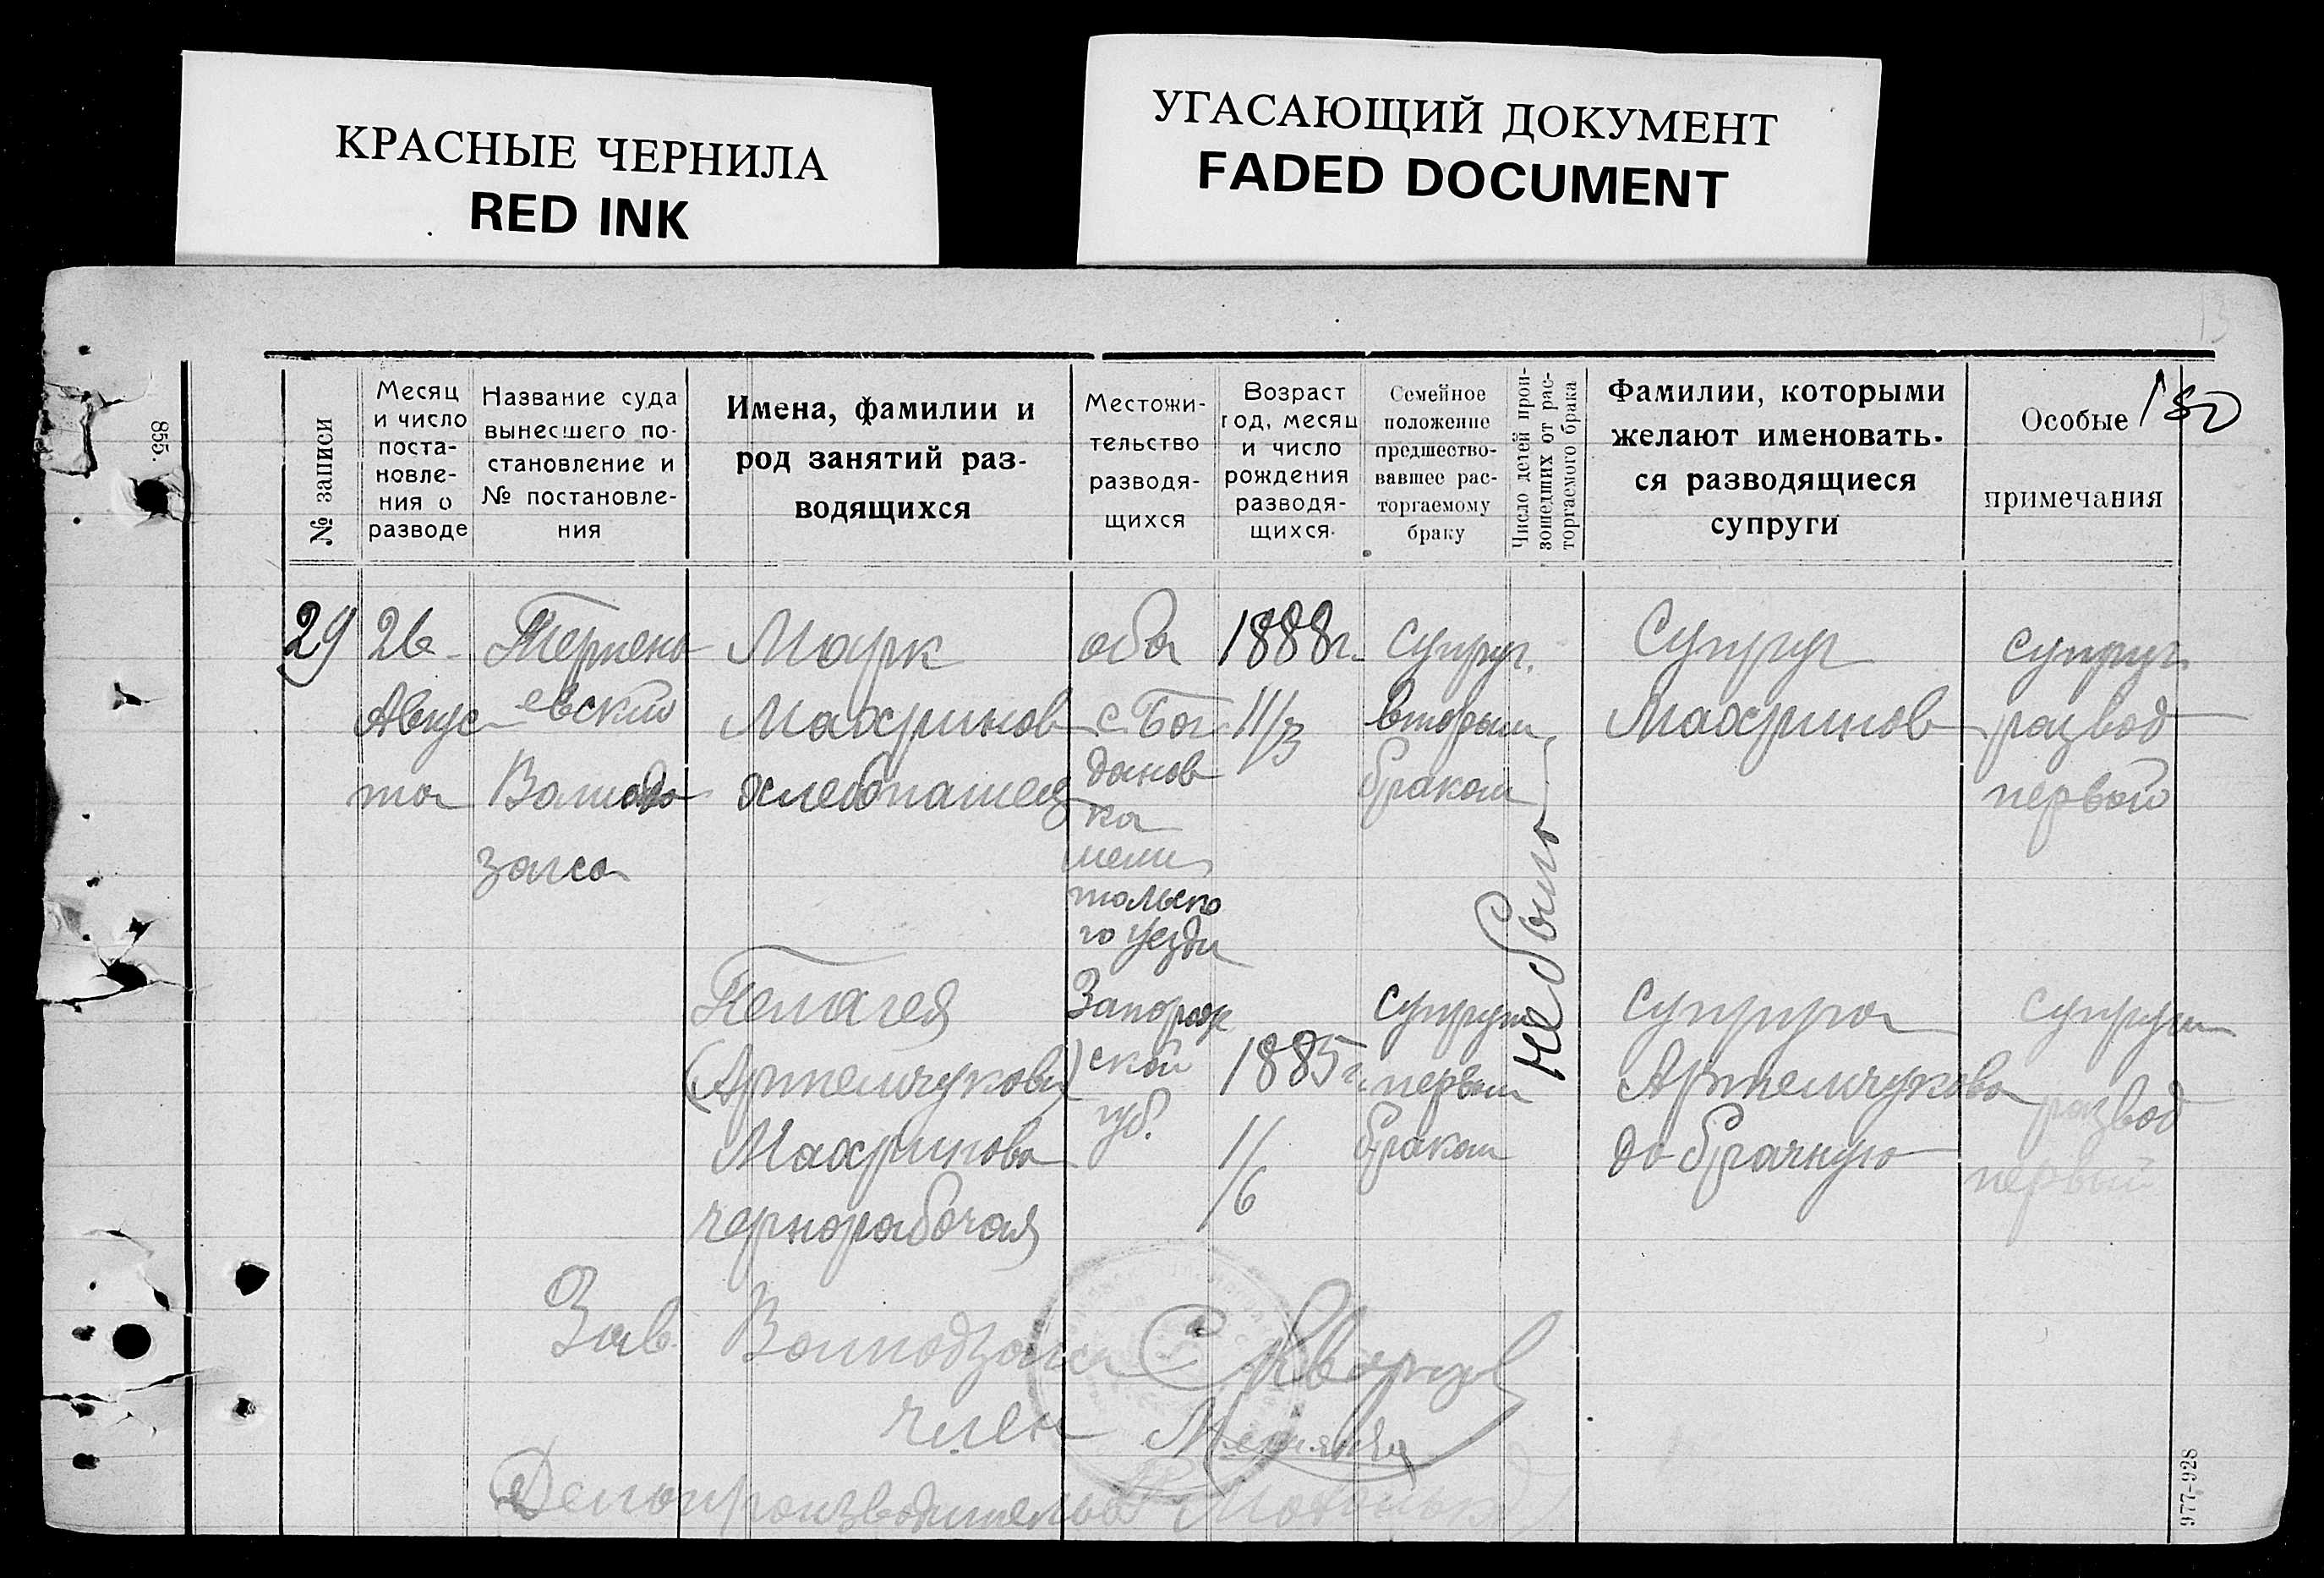 КРАСНЫЕ ЧЕРНИЛА
RED INK
УГАСАЮЩИЙ ДОКУМЕНТ
FADED DOCUMENT
855.
№ записи
Месяц
и число
поста-
новле-
ния о
разводе
Название суда
вынесшего по-
становление и
№ постановле-
ния
Имена, фамилии и
род занятий раз-
водящихся
Местожи-
тельство
разводя-
щихся
Возраст
год, месяц
и число
рождения
разводя-
щихся.
Семейное
положение
предшество-
вавшее рас-
торгаемому
браку
Число детей прои-
зошедших от рас-
торгаемого брака
Фамилии, которыми
желают именовать-
ся разводящиеся
супруги
Особые
примечания
180
29
26
Авгус
та
Терпень
евский
загса
Марк
Махринов
хлебопашец
оба
с. Бог
данов
ка
мели
тольско
го уезда
Запорож
ской
губ.
1888 г.
11/3
супруг.
вторым
браком
не было
Супруг
Махринов
супруг
развод
первой
Пелагея
(Артемчукова)
Махринова
чернорабочая
1885 г.
1/6
супруга
первым
браком
супруга
Артемчукова
до брачную
супруги
развод
первый
Зав.
член
Делопроизводитель
977-928